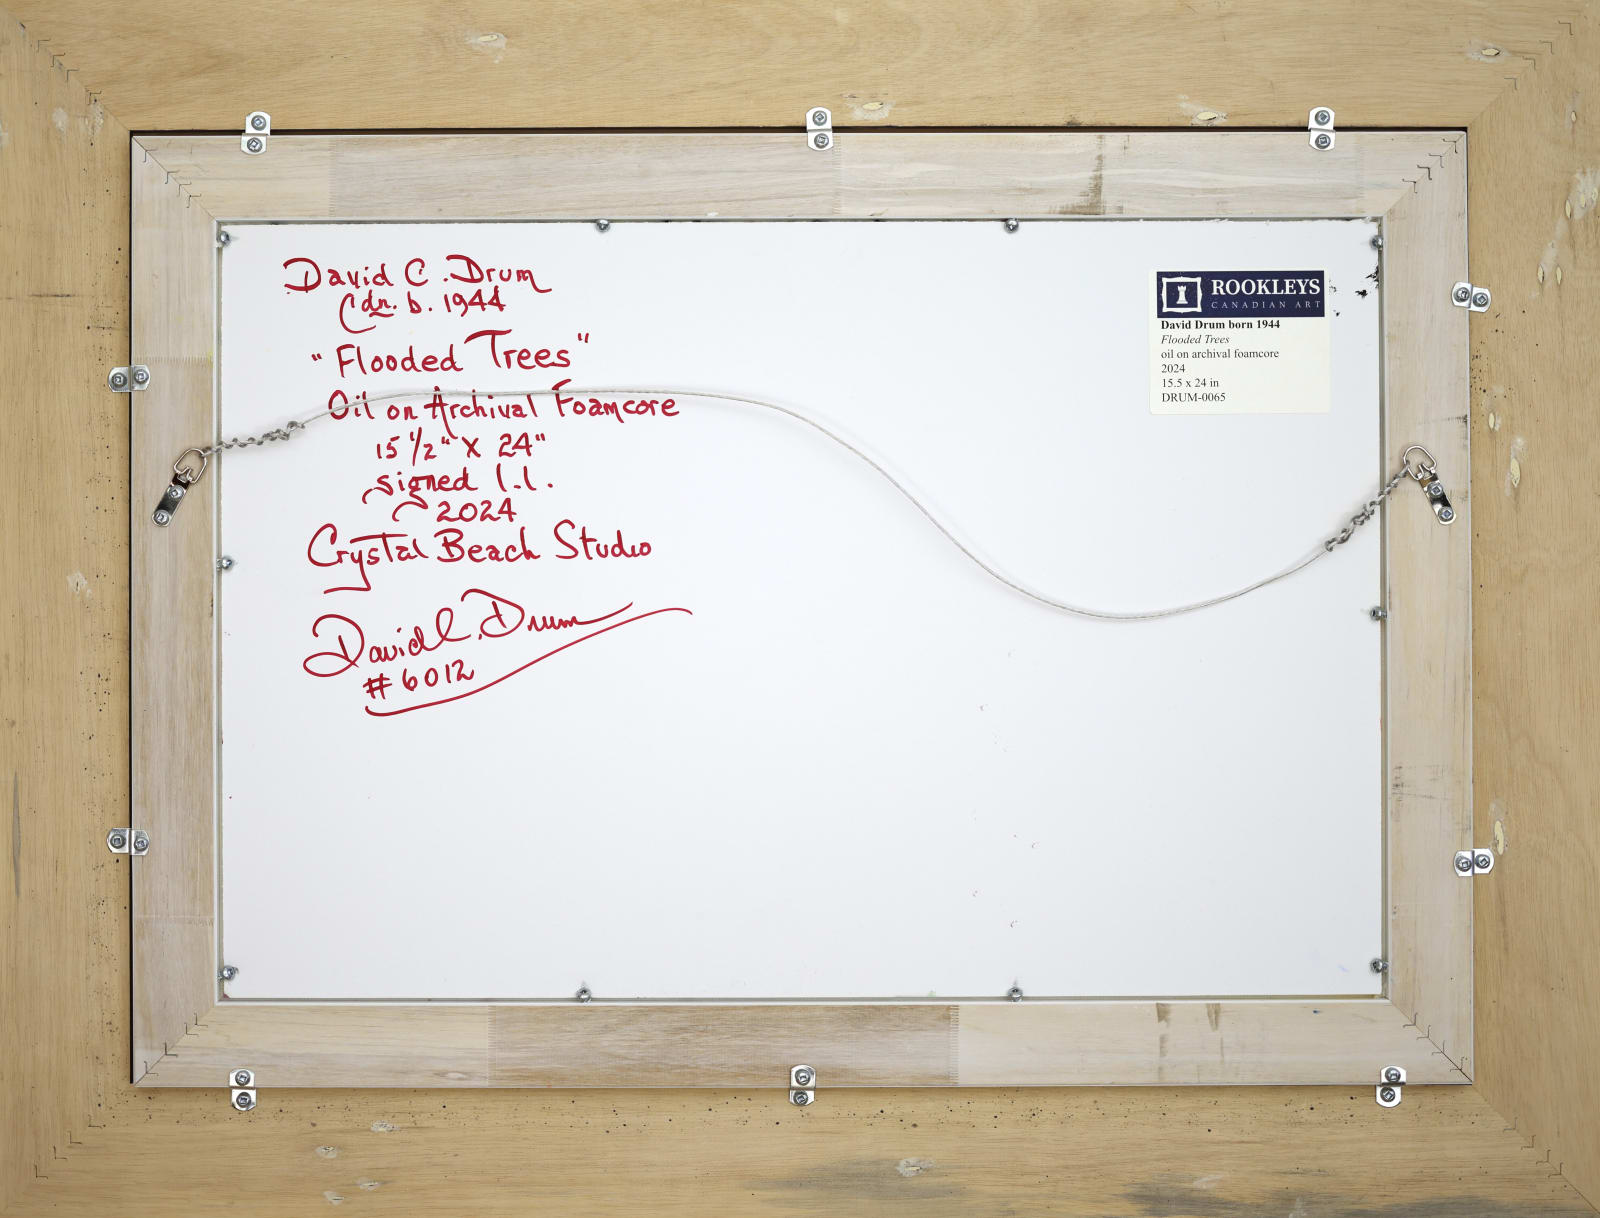 David C. Drum
Cdn. b. 1944
"Flooded Trees"
Oil on Archival Foamcore
15 1/2" X 24"
signed l.l.
2024
Crystal Beach Studio
David C. Drum
#6012
ROOKLEYS
CANADIAN ART
David Drum born 1944
Flooded Trees
oil on archival foamcore
2024
15.5 x 24 in
DRUM-0065